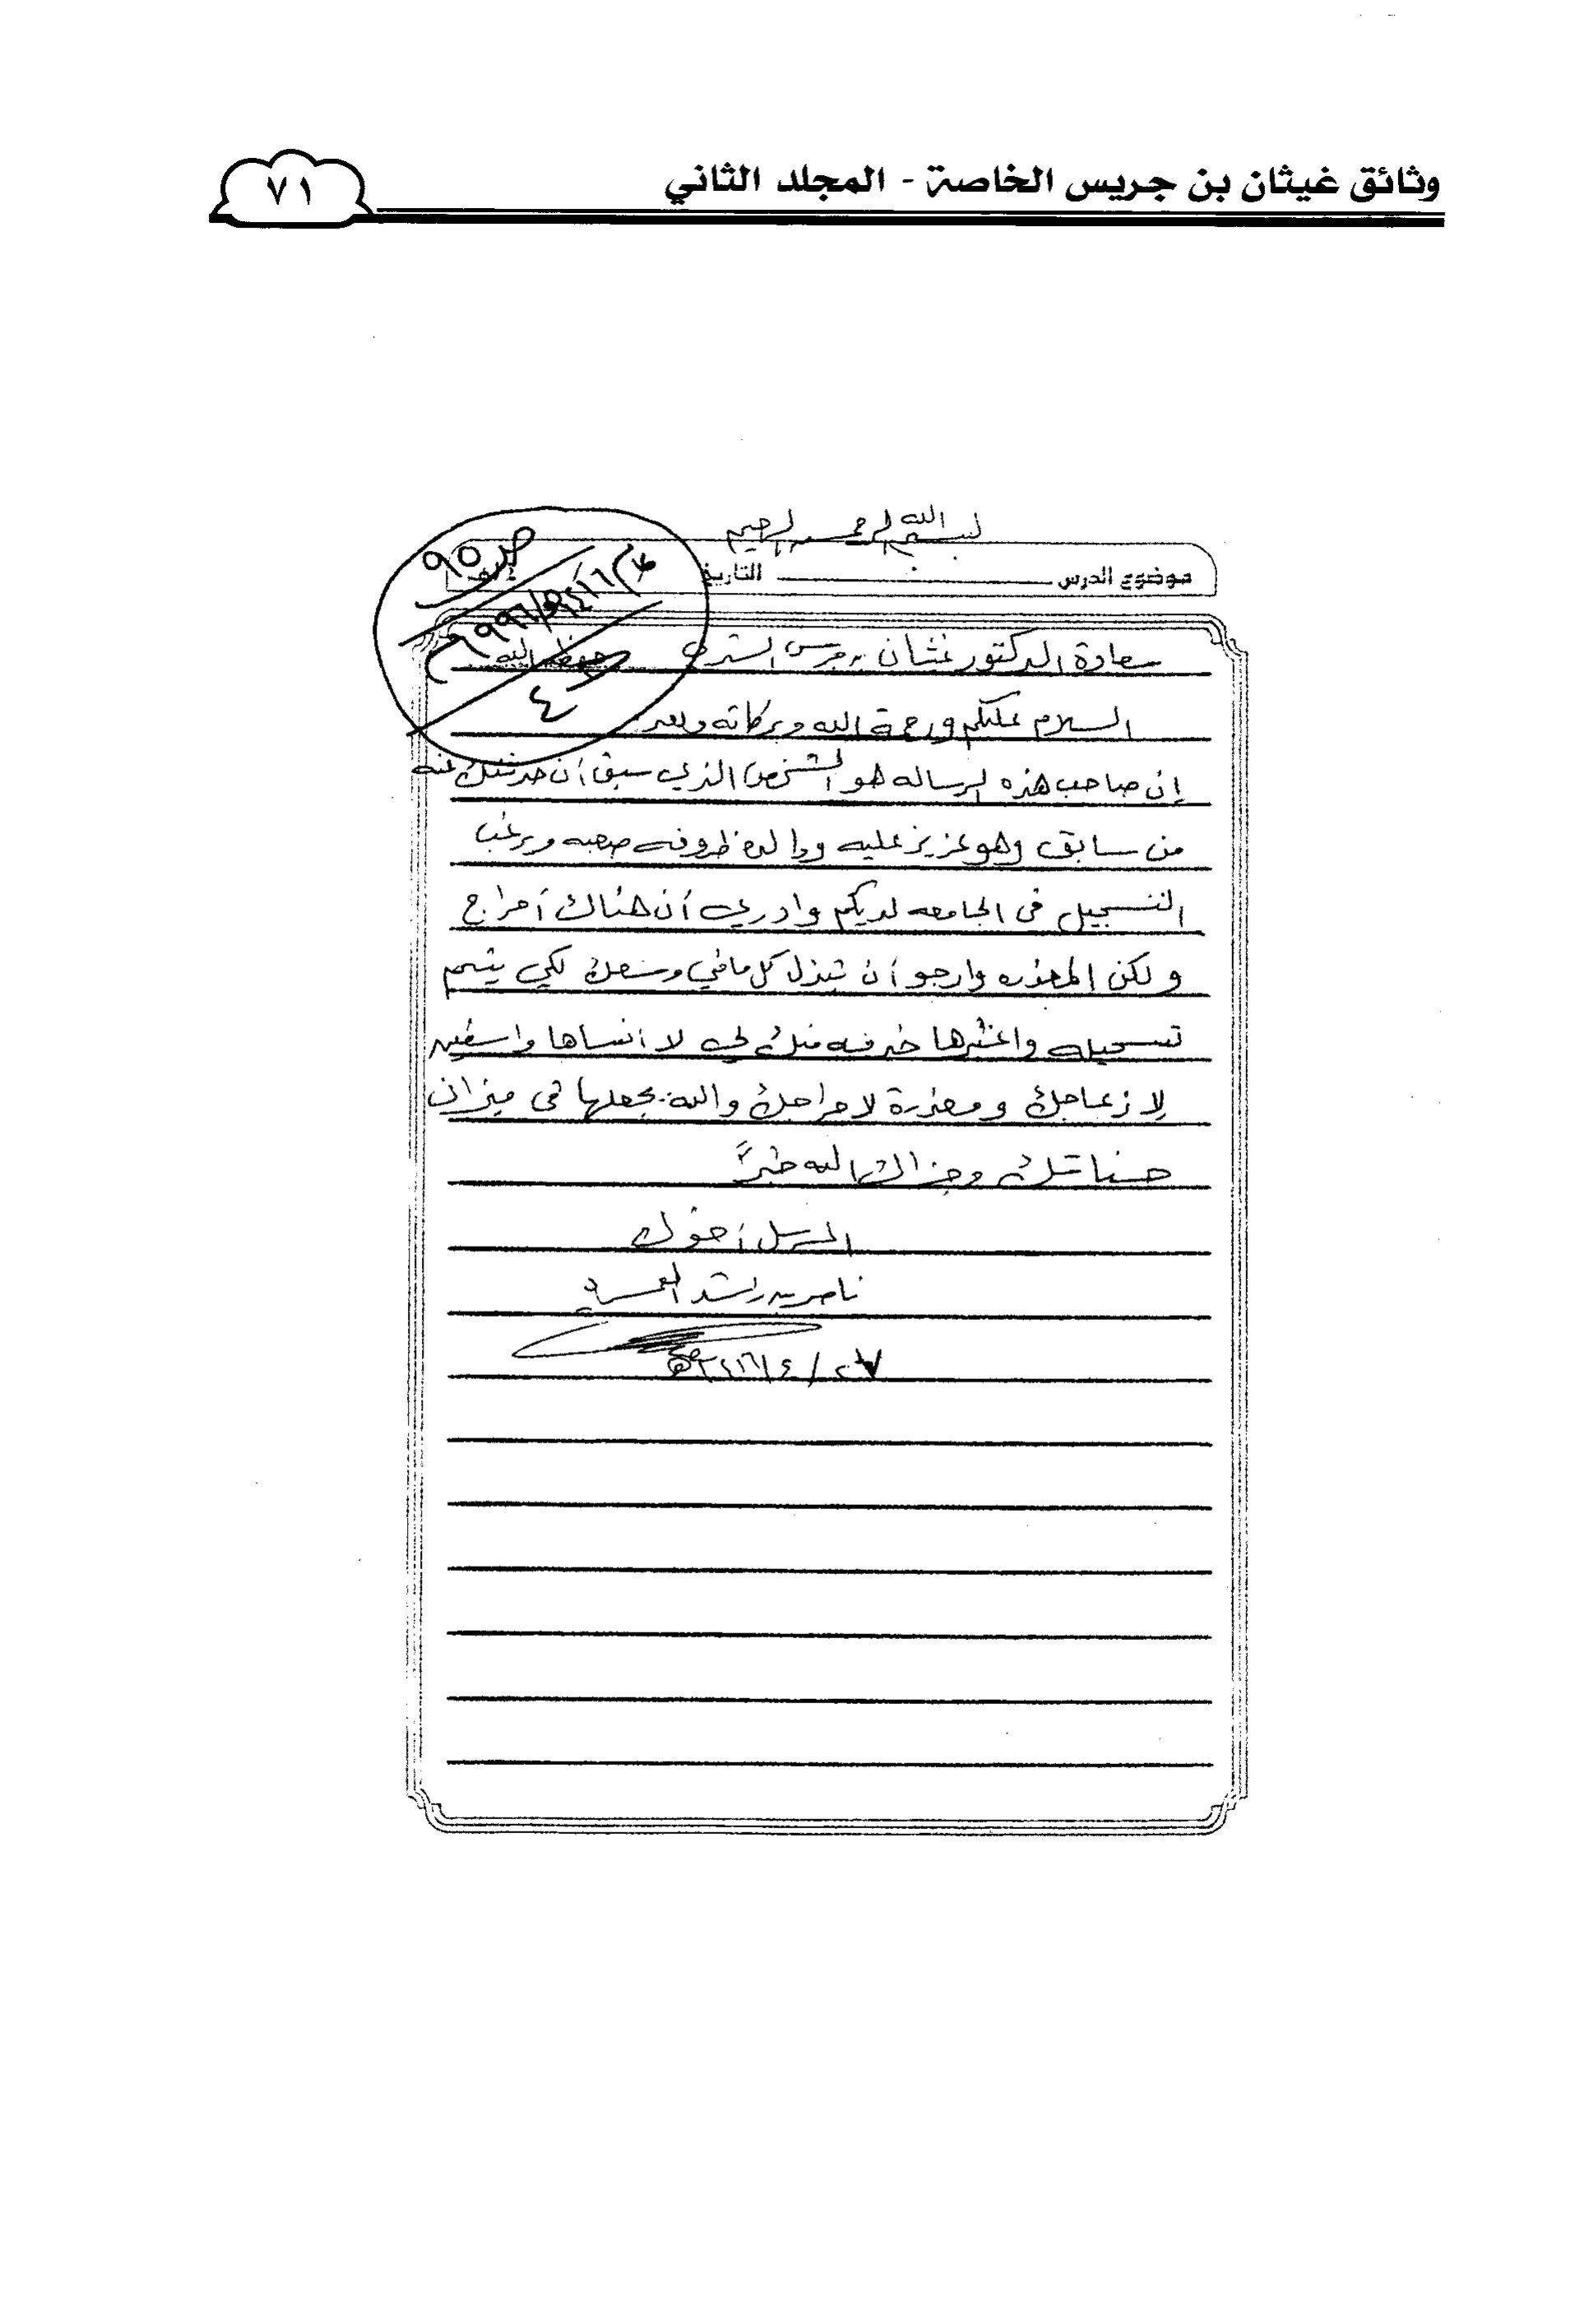 وثائق غيثان بن جريس الخاصة - المجلد الثاني
٧١
بسم الله الرحمن الرحيم
ص ٩٥
موضوع الدرس التاريخ
سعادة الدكتور غيثان بن جريس الشهري حفظه الله
٤
السلام عليكم ورحمة الله وبركاته وبعد
إن صاحب هذه الرساله هو الشخص الذي سبق أن حدثتك عنه
من سابق وهو عزيز عليه ووالده ظروفه صعبه ويرغب
التسجيل في الجامعه لديكم وادري أن هناك أحراج
ولكن المعذره وارجو أن تبذل كل مافي وسعك لكي يتم
تسجيله واعتبرها خدمه منك لي لا أنساها واسفين
لازعاجك ومعذرة لاحراجك والله يجعلها في ميزان
حسناتك وجزاك الله خيراً
المرسل أخوك
ناصر بن راشد العمري